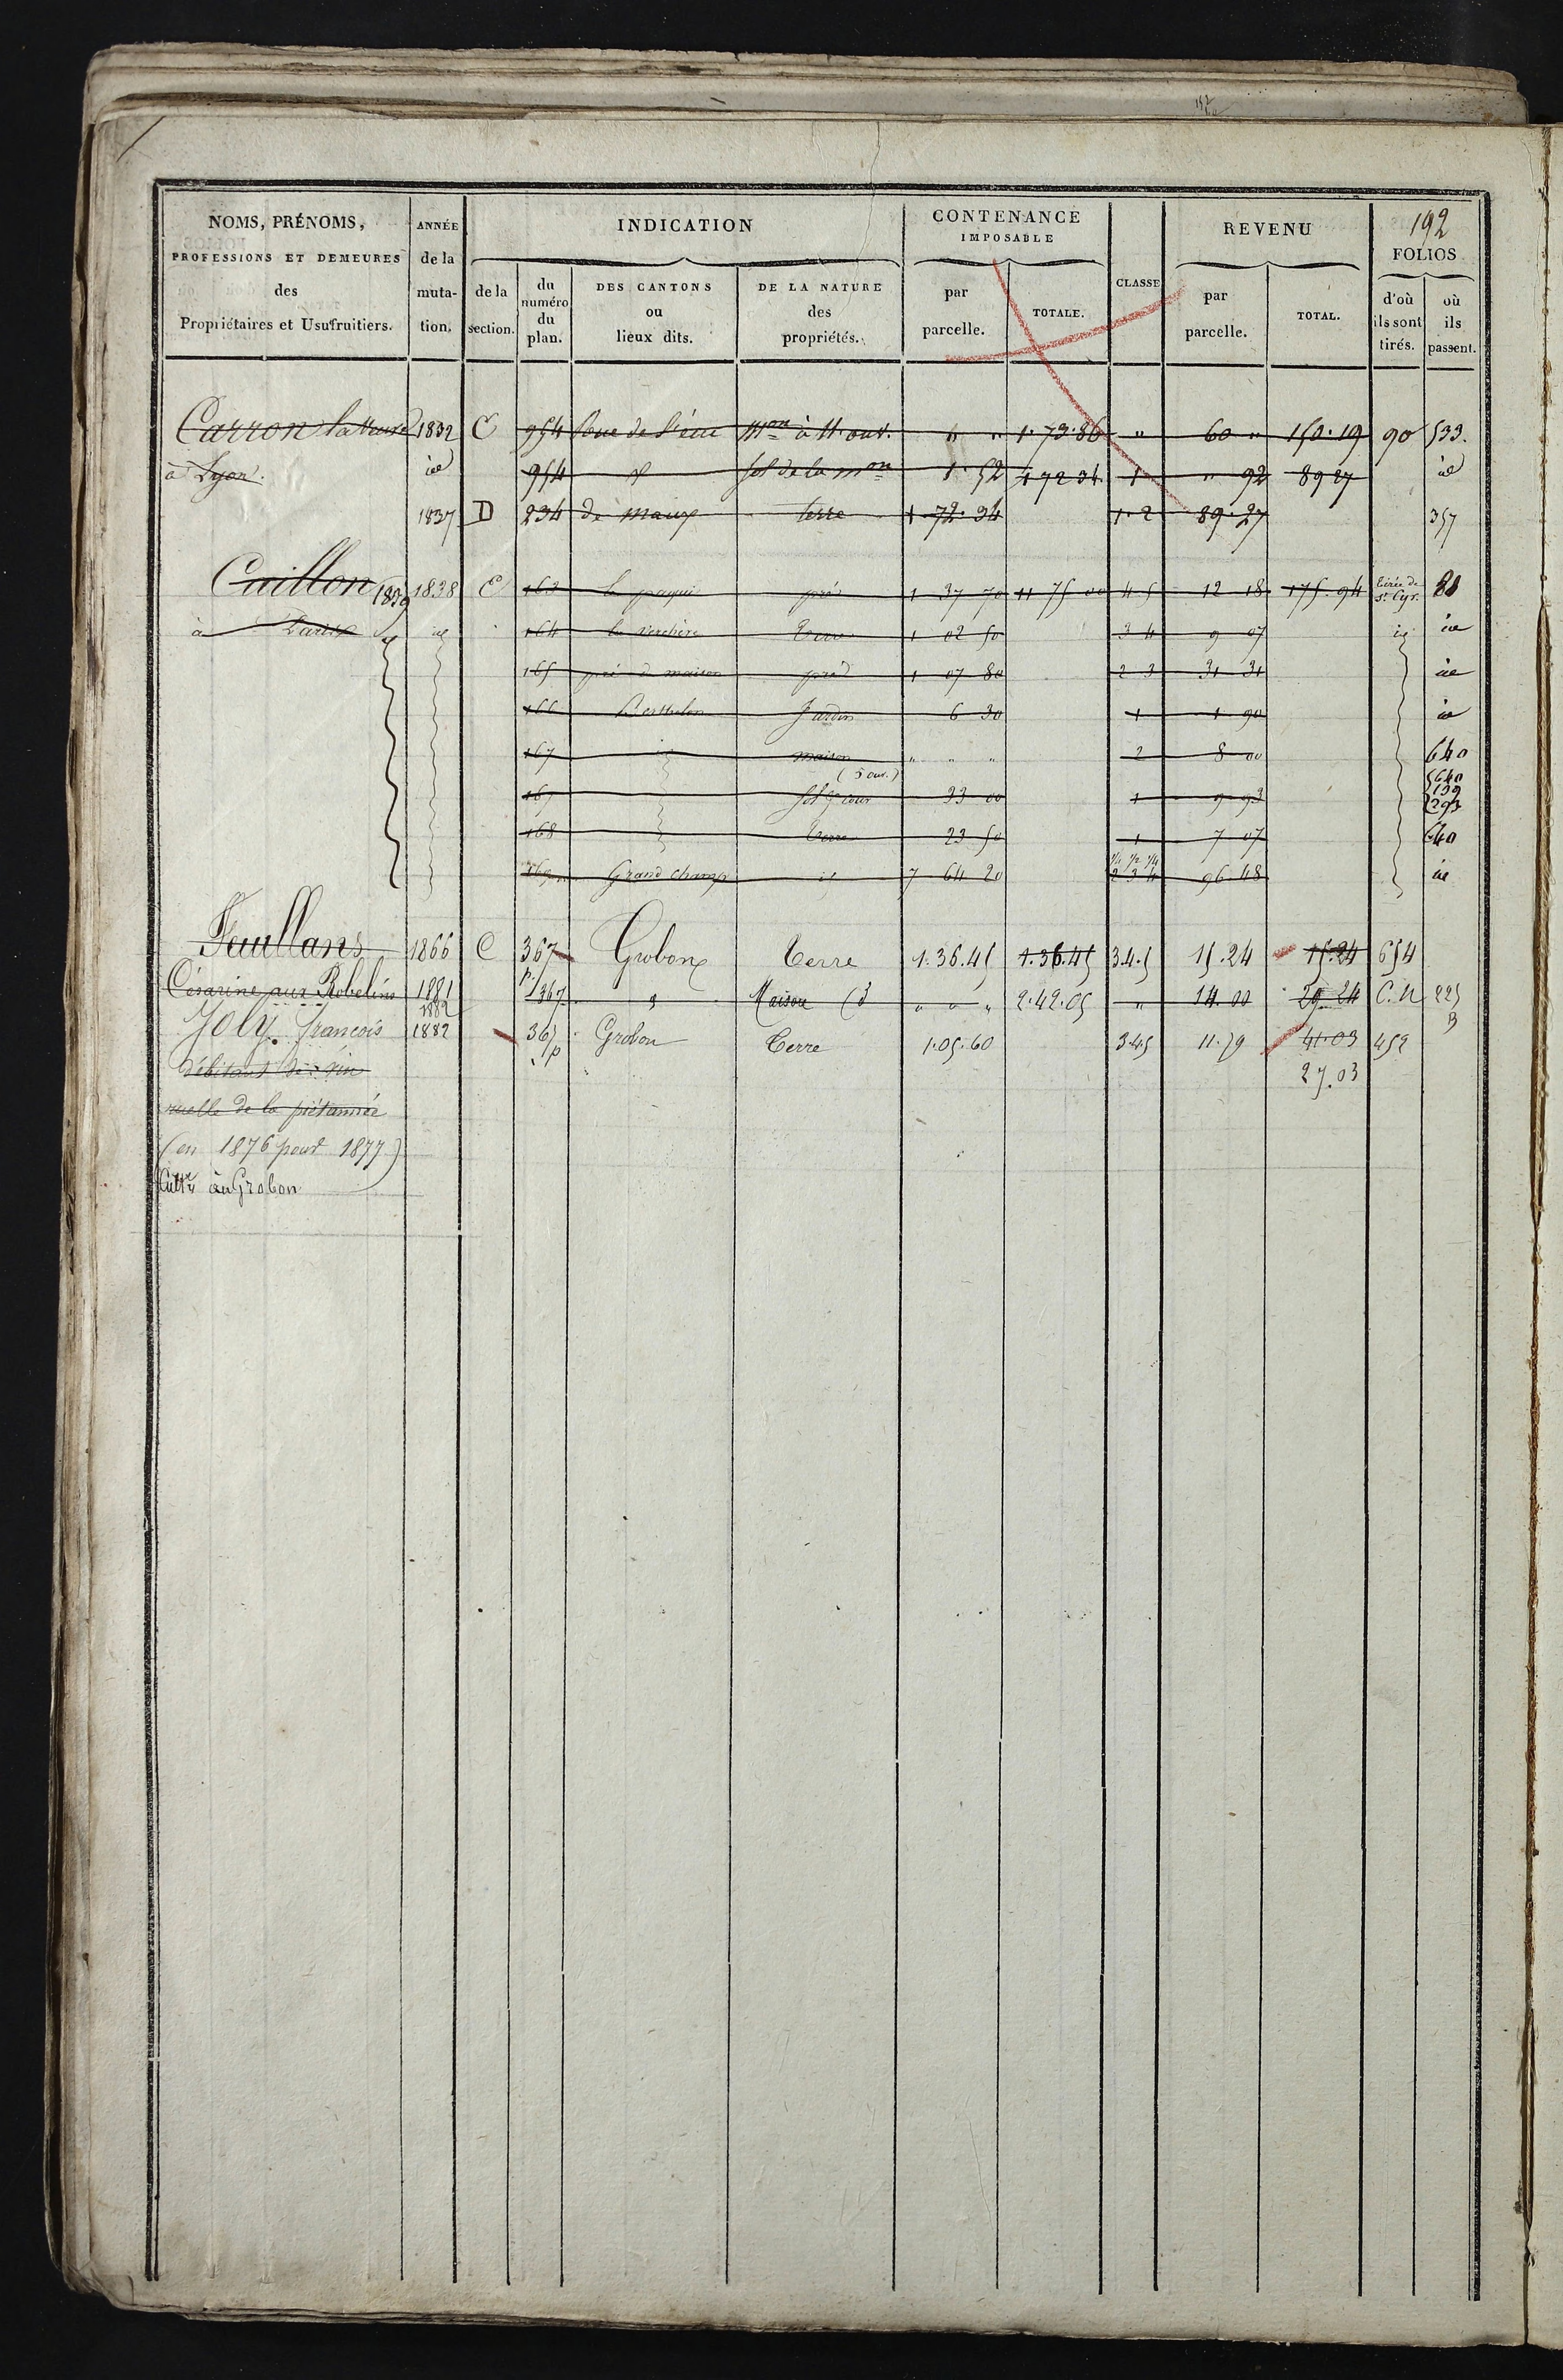 192
NOMS, PRÉNOMS,
PROFESSIONS ET DEMEURES
des
Propriétaires et Usufruitiers.
ANNÉE
de la
muta-
tion.
INDICATION
de la
section.
du
numéro
du
plan.
DES CANTONS
ou
lieux dits.
DE LA NATURE
des
propriétés.
CONTENANCE
IMPOSABLE
par
parcelle.
TOTALE.
CLASSE
REVENU
par
parcelle.
TOTAL.
FOLIOS
d'où
ils sont
tirés.
où
ils
passent.
Carron 1832 C 954 à 11 ouv. " " 1.73.86 " 60 " 150.19 90 533.
à Lyon. id 954 id sol de la mon 1.52 1 72 34 1 " 92 89 27 id
1837 D 234 de maux terre 1 72.34 1.2 89.27 357
Caillon 1839 1838 E 163 pré 1 37 70 11 75 00 4 5 12 18 175.94 tirée de St Cyr. 81
à Paris id 164 la verchère Terre 1 02 50 3 4 9 07 id id
165 pré d maison pré 1 07 80 2 3 31 31 id
166 Berthelon Jardin 6 30 1 1 90 id
167 id maison " " " 2 8 00 640
(3 ouv.)
167 sol & cour 33 00 1 9 93 640 139 293
168 Terre 23 50 1 7 07 640
169 Grand champ id 7 64 20 1/4 1/2 1/4 2 3 4 96.48 id
Feuillans 1866 C 367 p. Grobon Terre 1.36.45 1.36.45 3.4.5 15.24 15.24 654
Césarine aux Robelins 1881 1882 367 Maison (3 " " " 2.42.05 " 14.00 29.24 C.N 225
Joly françois 1882 367 p Grobon Terre 1.05.60 3.4.5 11.79 41.03 452
débitant de vin 27.03
ruelle de la
(en 1876 pour 1877)
Cultr à Grobon